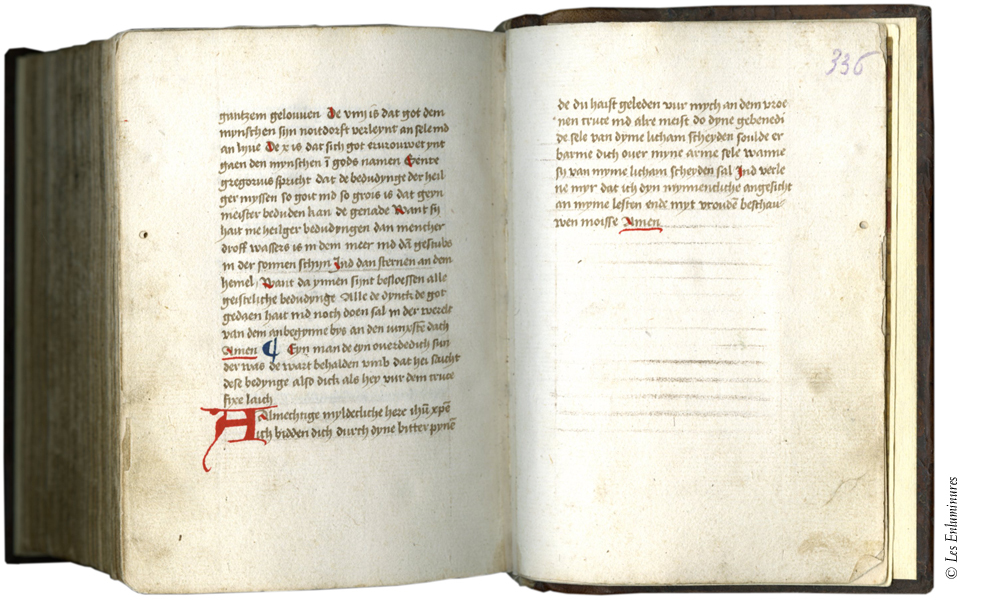 gantzem gelouven De viiij is dat got dem
mynschen sijn notdorft verleynt an sele ind
an lyve De x is dat sich got ervrouwet ynt
gaen den mynschen ī gods namen Sente
gregorius spricht dat de bedudynge der heil
ger myssen so goit ind so grois is dat geyn
meister beduden kan de genade Want sy
hait me heilger bedudyngen dan mencher
droff wassers is in dem meer ind dā gestubs
in der sonnen schijn Ind dan sternen an dem
hemel Want da ynnen sijnt besloessen alle
geistliche bedudynge Alle de dynck de got
gedaen hait ind noch doen sal in der werelt
van dem anbegynne bys an den iunxstē dach
Amen Eyn man de eyn overdedich sun
der was de wart behalden umb dat hei spricht
dese bedynge also dick als hey vur dem cruce
Almechtige myldecliche here ihū xpē
ich bidden dich durch dyne bitter pynē
336
de du haist geleden vur mych an dem vroe
nen cruce ind alre meist do dyne gebenedi
de sele van dyme licham scheyden soulde er
barme dich over myne arme sele wanne
sy van myme licham scheyden sal Ind verle
ne myr dat ich dyn mynnentliche angesicht
an myme lesten ende myt vroudē beschau
wen moisse Amen
© Les Enluminures